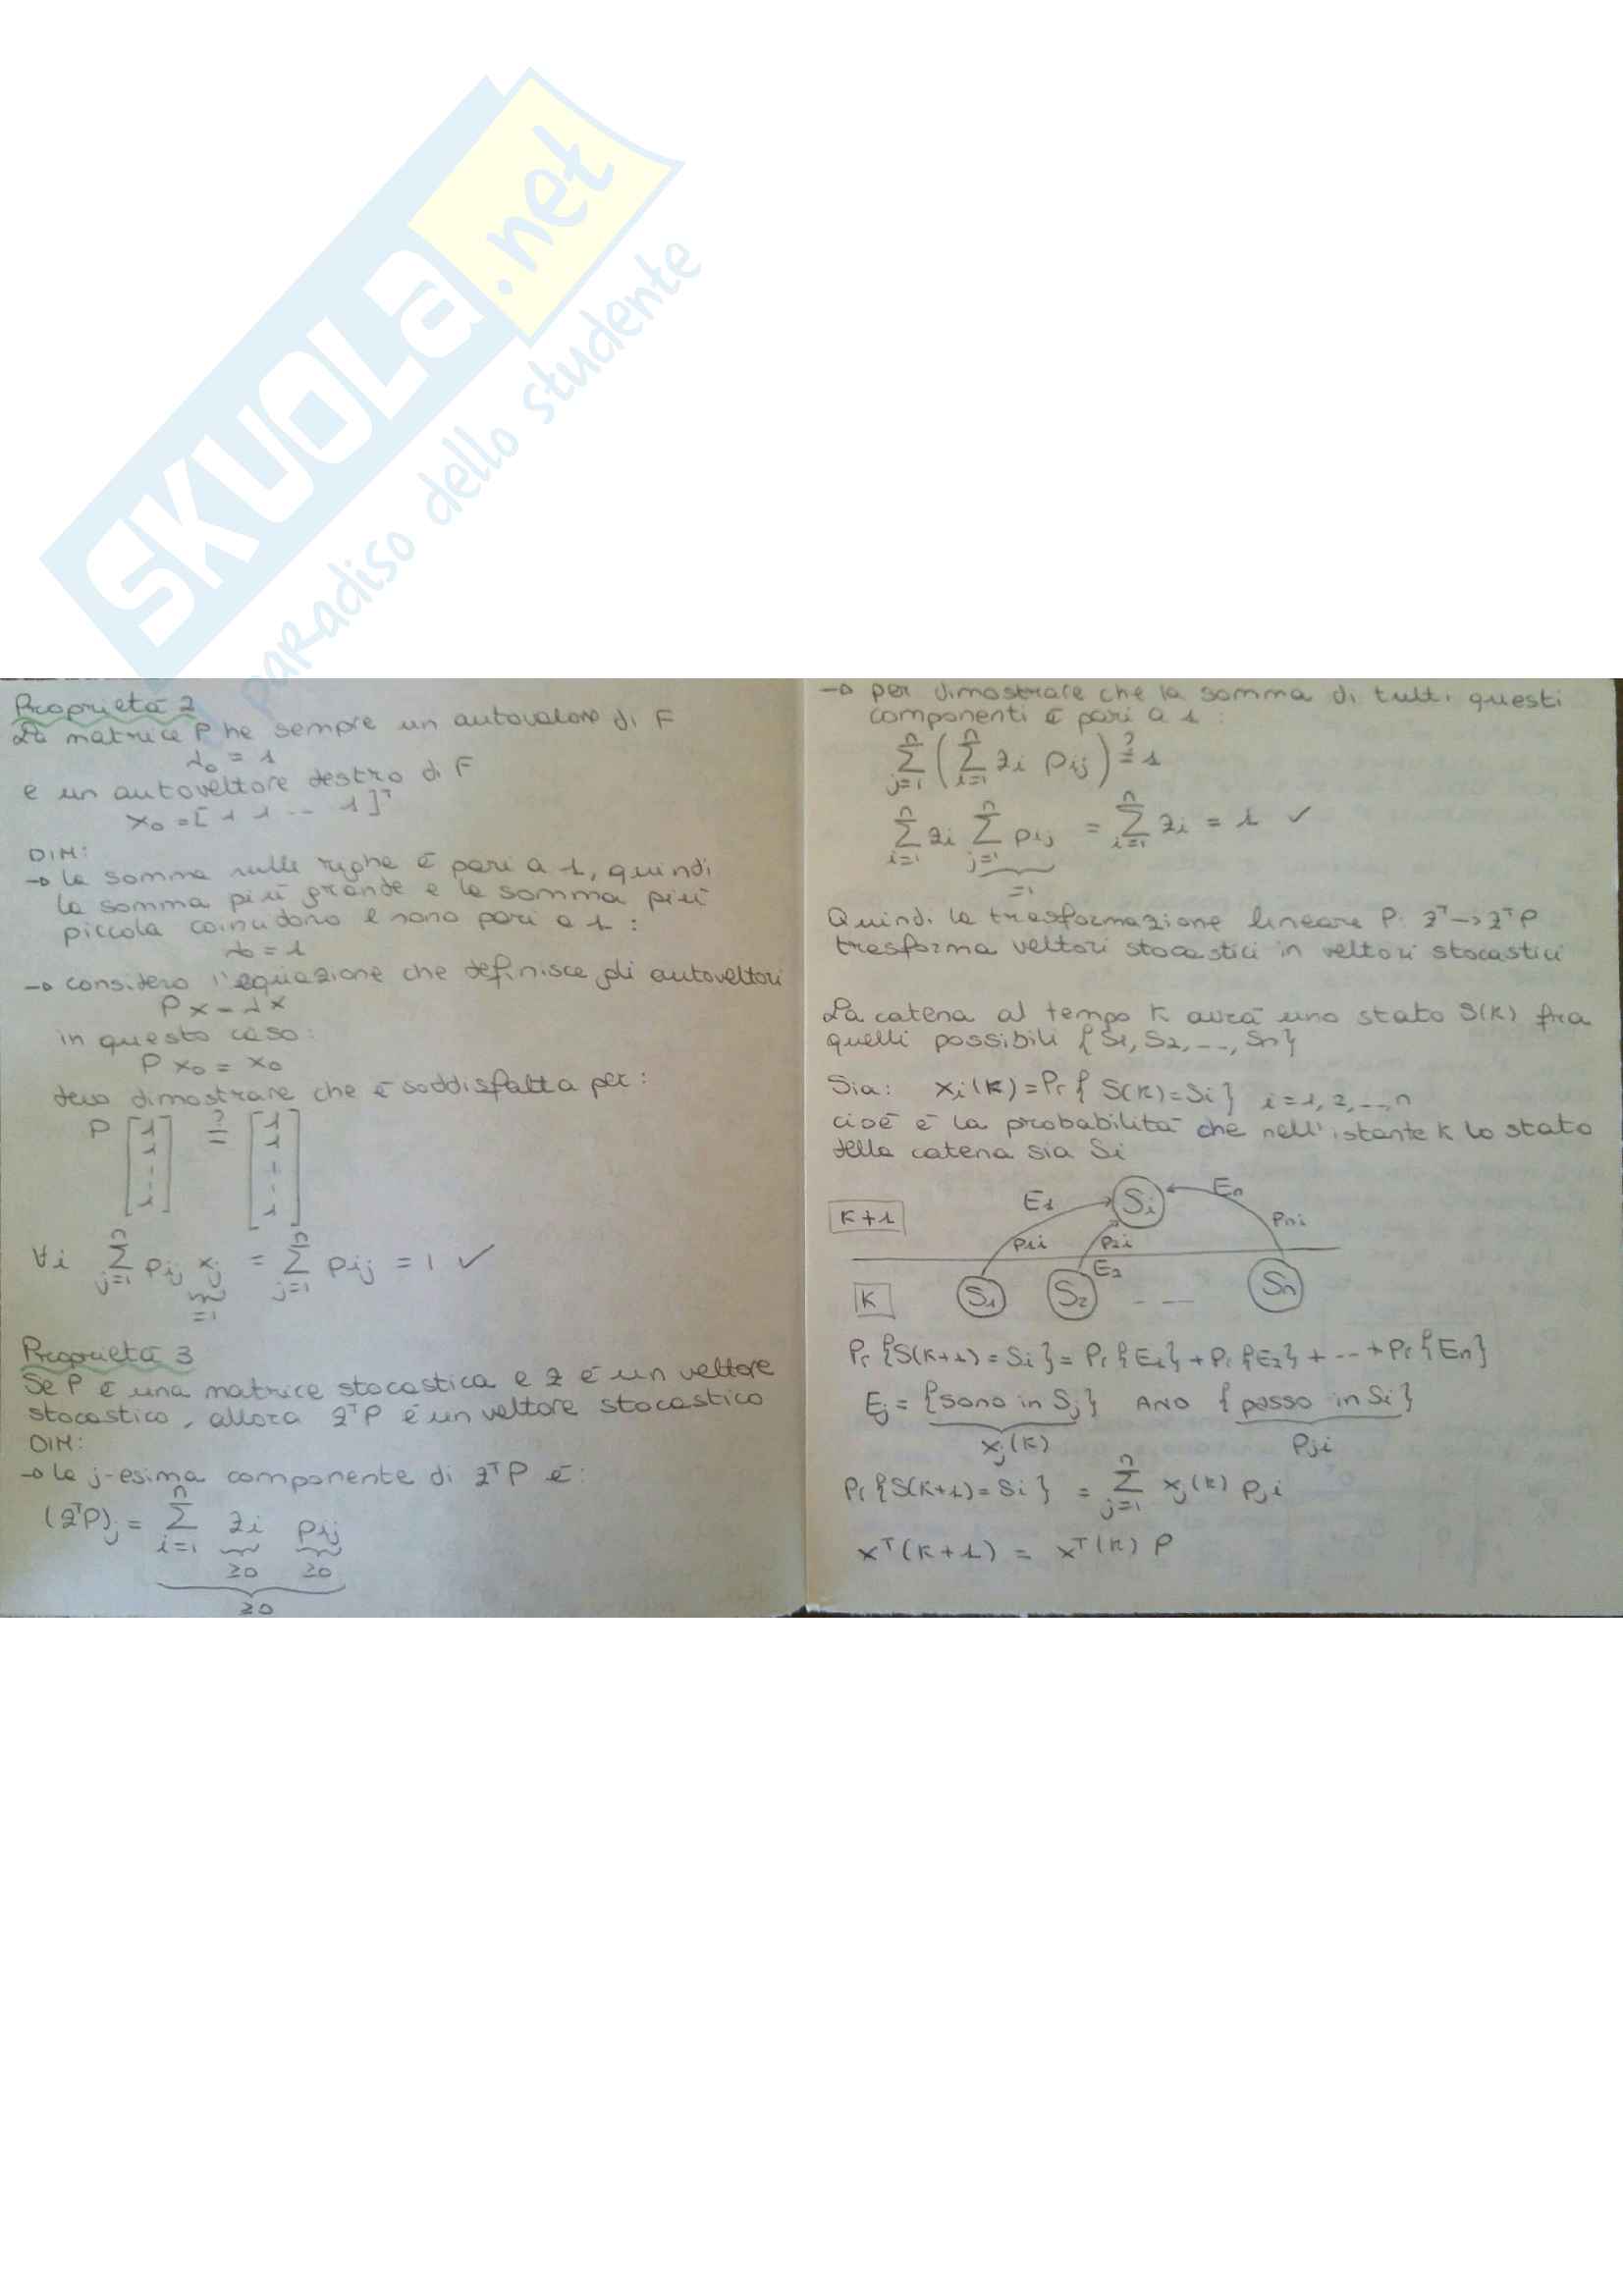 SKUOLA.net
paradiso dello studente
Proprietà 2
La matrice P ha sempre un autovalore di F
λ₀ = 1
e un autovettore destro di F
x₀ = [1 1 -- 1]ᵀ
DIM:
→ la somma sulle righe è pari a 1, quindi
la somma più grande e la somma più
piccola coincidono e sono pari a 1:
λ₀ = 1
→ considero l'equazione che definisce gli autovettori
Px = λx
in questo caso:
Px₀ = x₀
devo dimostrare che è soddisfatta per:
P [1 1 --- 1] ?= [1 1 --- 1]
∀i ∑ⱼ₌₁ⁿ pij xj = ∑ⱼ₌₁ⁿ pij = 1 ✓
=1
Proprietà 3
Se P è una matrice stocastica e z è un vettore
stocastico, allora zᵀP è un vettore stocastico
DIM:
→ la j-esima componente di zᵀP è:
(zᵀP)j = ∑ᵢ₌₁ⁿ zi pij
≥0 ≥0
≥0
→ per dimostrare che la somma di tutti questi
componenti è pari a 1:
∑ⱼ₌₁ⁿ (∑ᵢ₌₁ⁿ zi pij) ?= 1
∑ᵢ₌₁ⁿ zi ∑ⱼ₌₁ⁿ pij = ∑ᵢ₌₁ⁿ zi = 1 ✓
=1
Quindi la trasformazione lineare P: zᵀ → zᵀP
trasforma vettori stocastici in vettori stocastici
La catena al tempo k avrà uno stato S(k) fra
quelli possibili {S1, S2, --, Sn}
Sia: xi(k) = Pr{S(k)=Si} i=1, 2, --, n
cioè è la probabilità che nell'istante k lo stato
della catena sia Si
E1 Si En
k+1 p1i p2i pni
E2
k S1 S2 - -- Sn
Pr{S(k+1)=Si} = Pr{E1} + Pr{E2} + -- + Pr{En}
Ej = {sono in Sj} AND {passo in Si}
xj(k) pji
Pr{S(k+1)=Si} = ∑ⱼ₌₁ⁿ xj(k) pji
xᵀ(k+1) = xᵀ(k) P